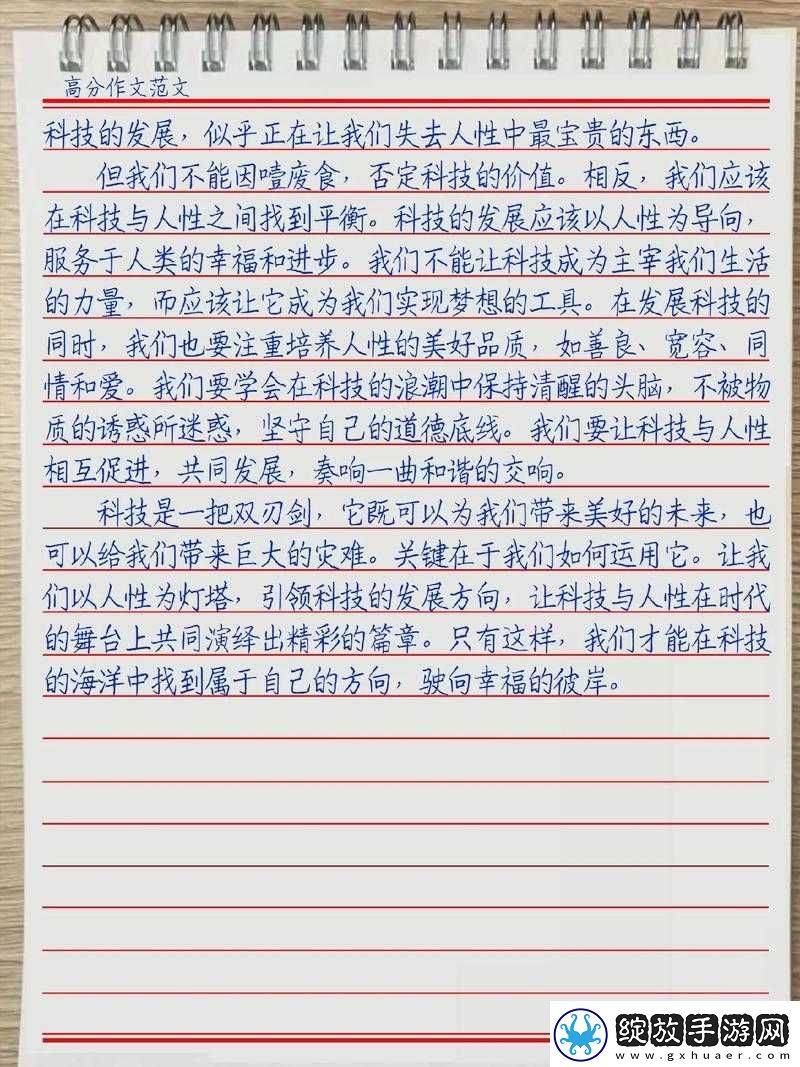 高分作文范文
科技的发展，似乎正在让我们失去人性中最宝贵的东西。
但我们不能因噎废食，否定科技的价值。相反，我们应该
在科技与人性之间找到平衡。科技的发展应该以人性为导向，
服务于人类的幸福和进步。我们不能让科技成为主宰我们生活
的力量，而应该让它成为我们实现梦想的工具。在发展科技的
同时，我们也要注重培养人性的美好品质，如善良、宽容、同
情和爱。我们要学会在科技的浪潮中保持清醒的头脑，不被物
质的诱惑所迷惑，坚守自己的道德底线。我们要让科技与人性
相互促进，共同发展，奏响一曲和谐的交响。
科技是一把双刃剑，它既可以为我们带来美好的未来，也
可以给我们带来巨大的灾难。关键在于我们如何运用它。让我
们以人性为灯塔，引领科技的发展方向，让科技与人性在时代
的舞台上共同演绎出精彩的篇章。只有这样，我们才能在科技
的海洋中找到属于自己的方向，驶向幸福的彼岸。
绽放手游网
www.gxhuaer.com